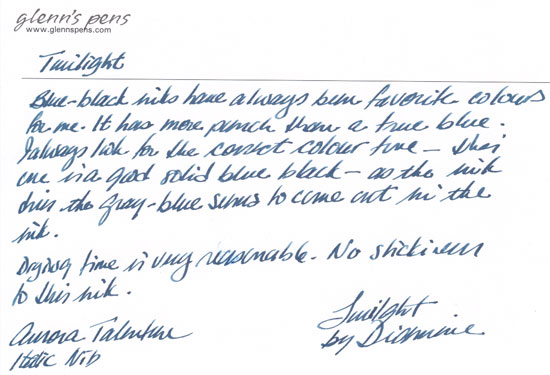 glenn's pens
www.glennspens.com
Twilight
Blue-black inks have always been favorite colours
for me. It has more punch than a true blue.
I always look for the correct colour tone – this
one is a good solid blue black – as the ink
dries the gray-blue seems to come out in the
ink.
Drying time is very reasonable. No stickiness
to this ink.
Aurora Talentum
Italic Nib
Twilight
by Diamine